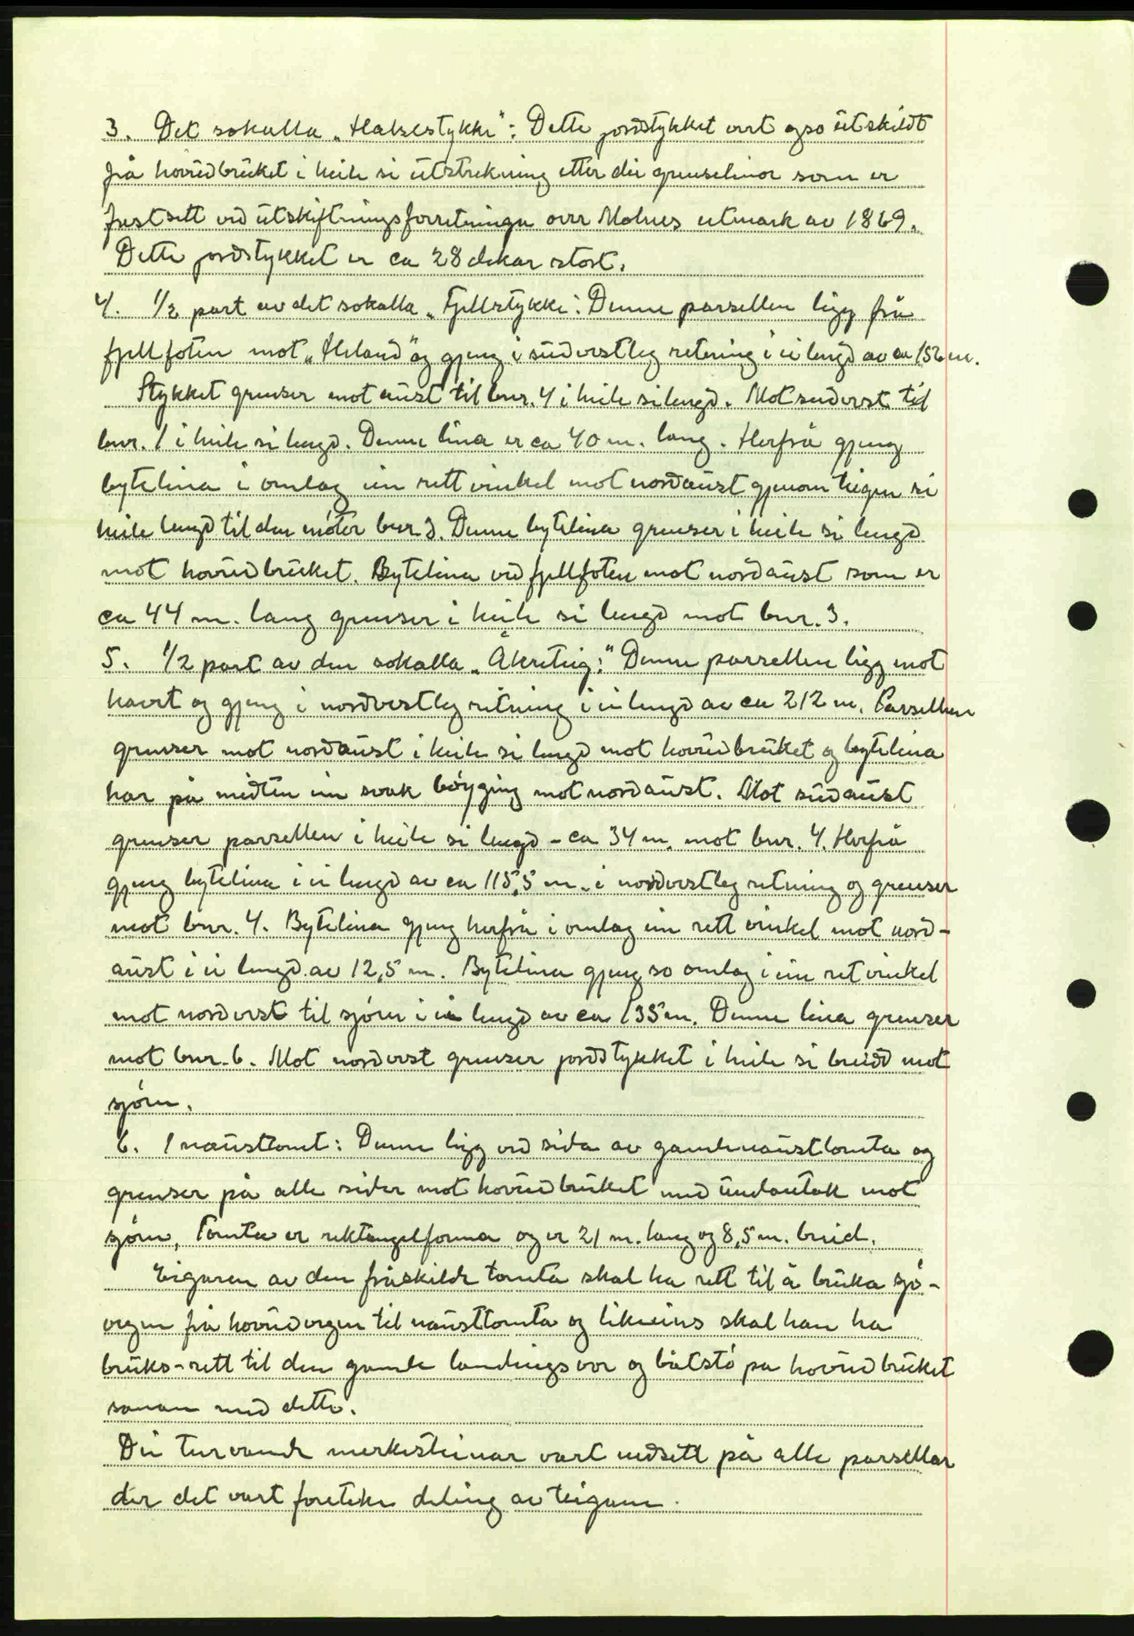 3. Det sokalla „Halsestykke": Dette jordstykket vert ogso útskildt
frå hovúdbrúket i heile si útstrekning etter dei grenselinor som er
fastsett ved útskiftningsforretninga over Molnes utmark av 1869.
Dette jordstykket er ca 28 dekar stort.
4. 1/2 part av det sokalla „Fjellstykke": Denne parsellen ligg frå
fjellfoten mot „Heland" og gjeng i súdvestleg retning i ei lengd av ca 152 m.
Stykket grenser mot aust til bnr. 4 i heile si lengd. Mot sudvest til
bnr. 1 i heile si lengd. Denne lina er ca 40 m. lang. Herfrå gjeng
bytelina i omlag ein rett vinkel mot nordaúst gjenom teigen si
heile lengd til den móter bnr. 3. Denne bytelina grenser i heile si lengd
mot hovúdbrúket. Bytelina ved fjellfoten mot nordaúst som er
ca 44 m. lang grenser i heile si lengd mot bnr. 3.
5. 1/2 part av den sokalla „Åkreteig:" Denne parsellen ligg mot
havet og gjeng i nordvestleg retning i ei lengd av ca 212 m. Parsellen
grenser mot nordaúst i heile si lengd mot hovúdbrúket og bytelina
har på midten ein svak bóyging mot nordaúst. Mot súdaúst
grenser parsellen i heile si lengd - ca 34 m. mot bnr. 4. Herfrå
gjeng bytelina i ei lengd av ca 115,5 m. i nordvestleg retning og grenser
mot bnr. 4. Bytelina gjeng herfrå i omlag ein rett vinkel mot nord-
aúst i ei lengd av 12,5 m. Bytelina gjeng so omlag i ein ret vinkel
mot nordvest til sjóen i ei lengd av ca 135 m. Denne lina grenser
mot bnr. 6. Mot nordvest grenser jordstykket i heile si breidd mot
sjóen.
6. 1 naústtomt: Denne ligg ved sida av gamlenaústtomta og
grenser på alle sider mot hovúdbrúket med úndantak mot
sjóen. Tomta er rektangelforma og er 21 m. lang og 8,5 m. breid.
Eigaren av den fråskilde tomta skal ha rett til å brúka sjó-
vegen frå hovúdvegen til naústtomta og likeeins skal han ha
brúks-rett til den gamle landingsvor og båtstó på hovúdbrúket
saman med dette.
Dei turvande merkesteinar vart nedsett på alle parsellar
der det vart foreteke deling av teigane.